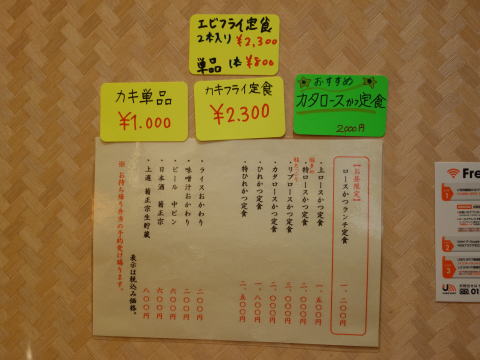 エビフライ定食
2本入り ¥2,300
単品 1本 ¥800
カキ単品
¥1.000
カキフライ定食
¥2.300
おすすめ
カタロースかつ定食
2000円
【お昼限定】
ロースかつランチ定食 一、二〇〇円
・上ロースかつ定食 一、五〇〇円
・特ロースかつ定食 二、〇〇〇円
・リブロースかつ定食 三、〇〇〇円
・カタロースかつ定食 二、〇〇〇円
・ひれかつ定食 一、八〇〇円
・特ひれかつ定食 二、五〇〇円
・ライスおかわり 二〇〇円
・味噌汁おかわり 二〇〇円
・ビール 中ビン 六〇〇円
・日本酒 菊正宗 六〇〇円
・上選 菊正宗生貯蔵 八〇〇円
表示は税込み価格。
※お持ち帰り弁当の予約受け賜ります。
Fre
1
2
3
01